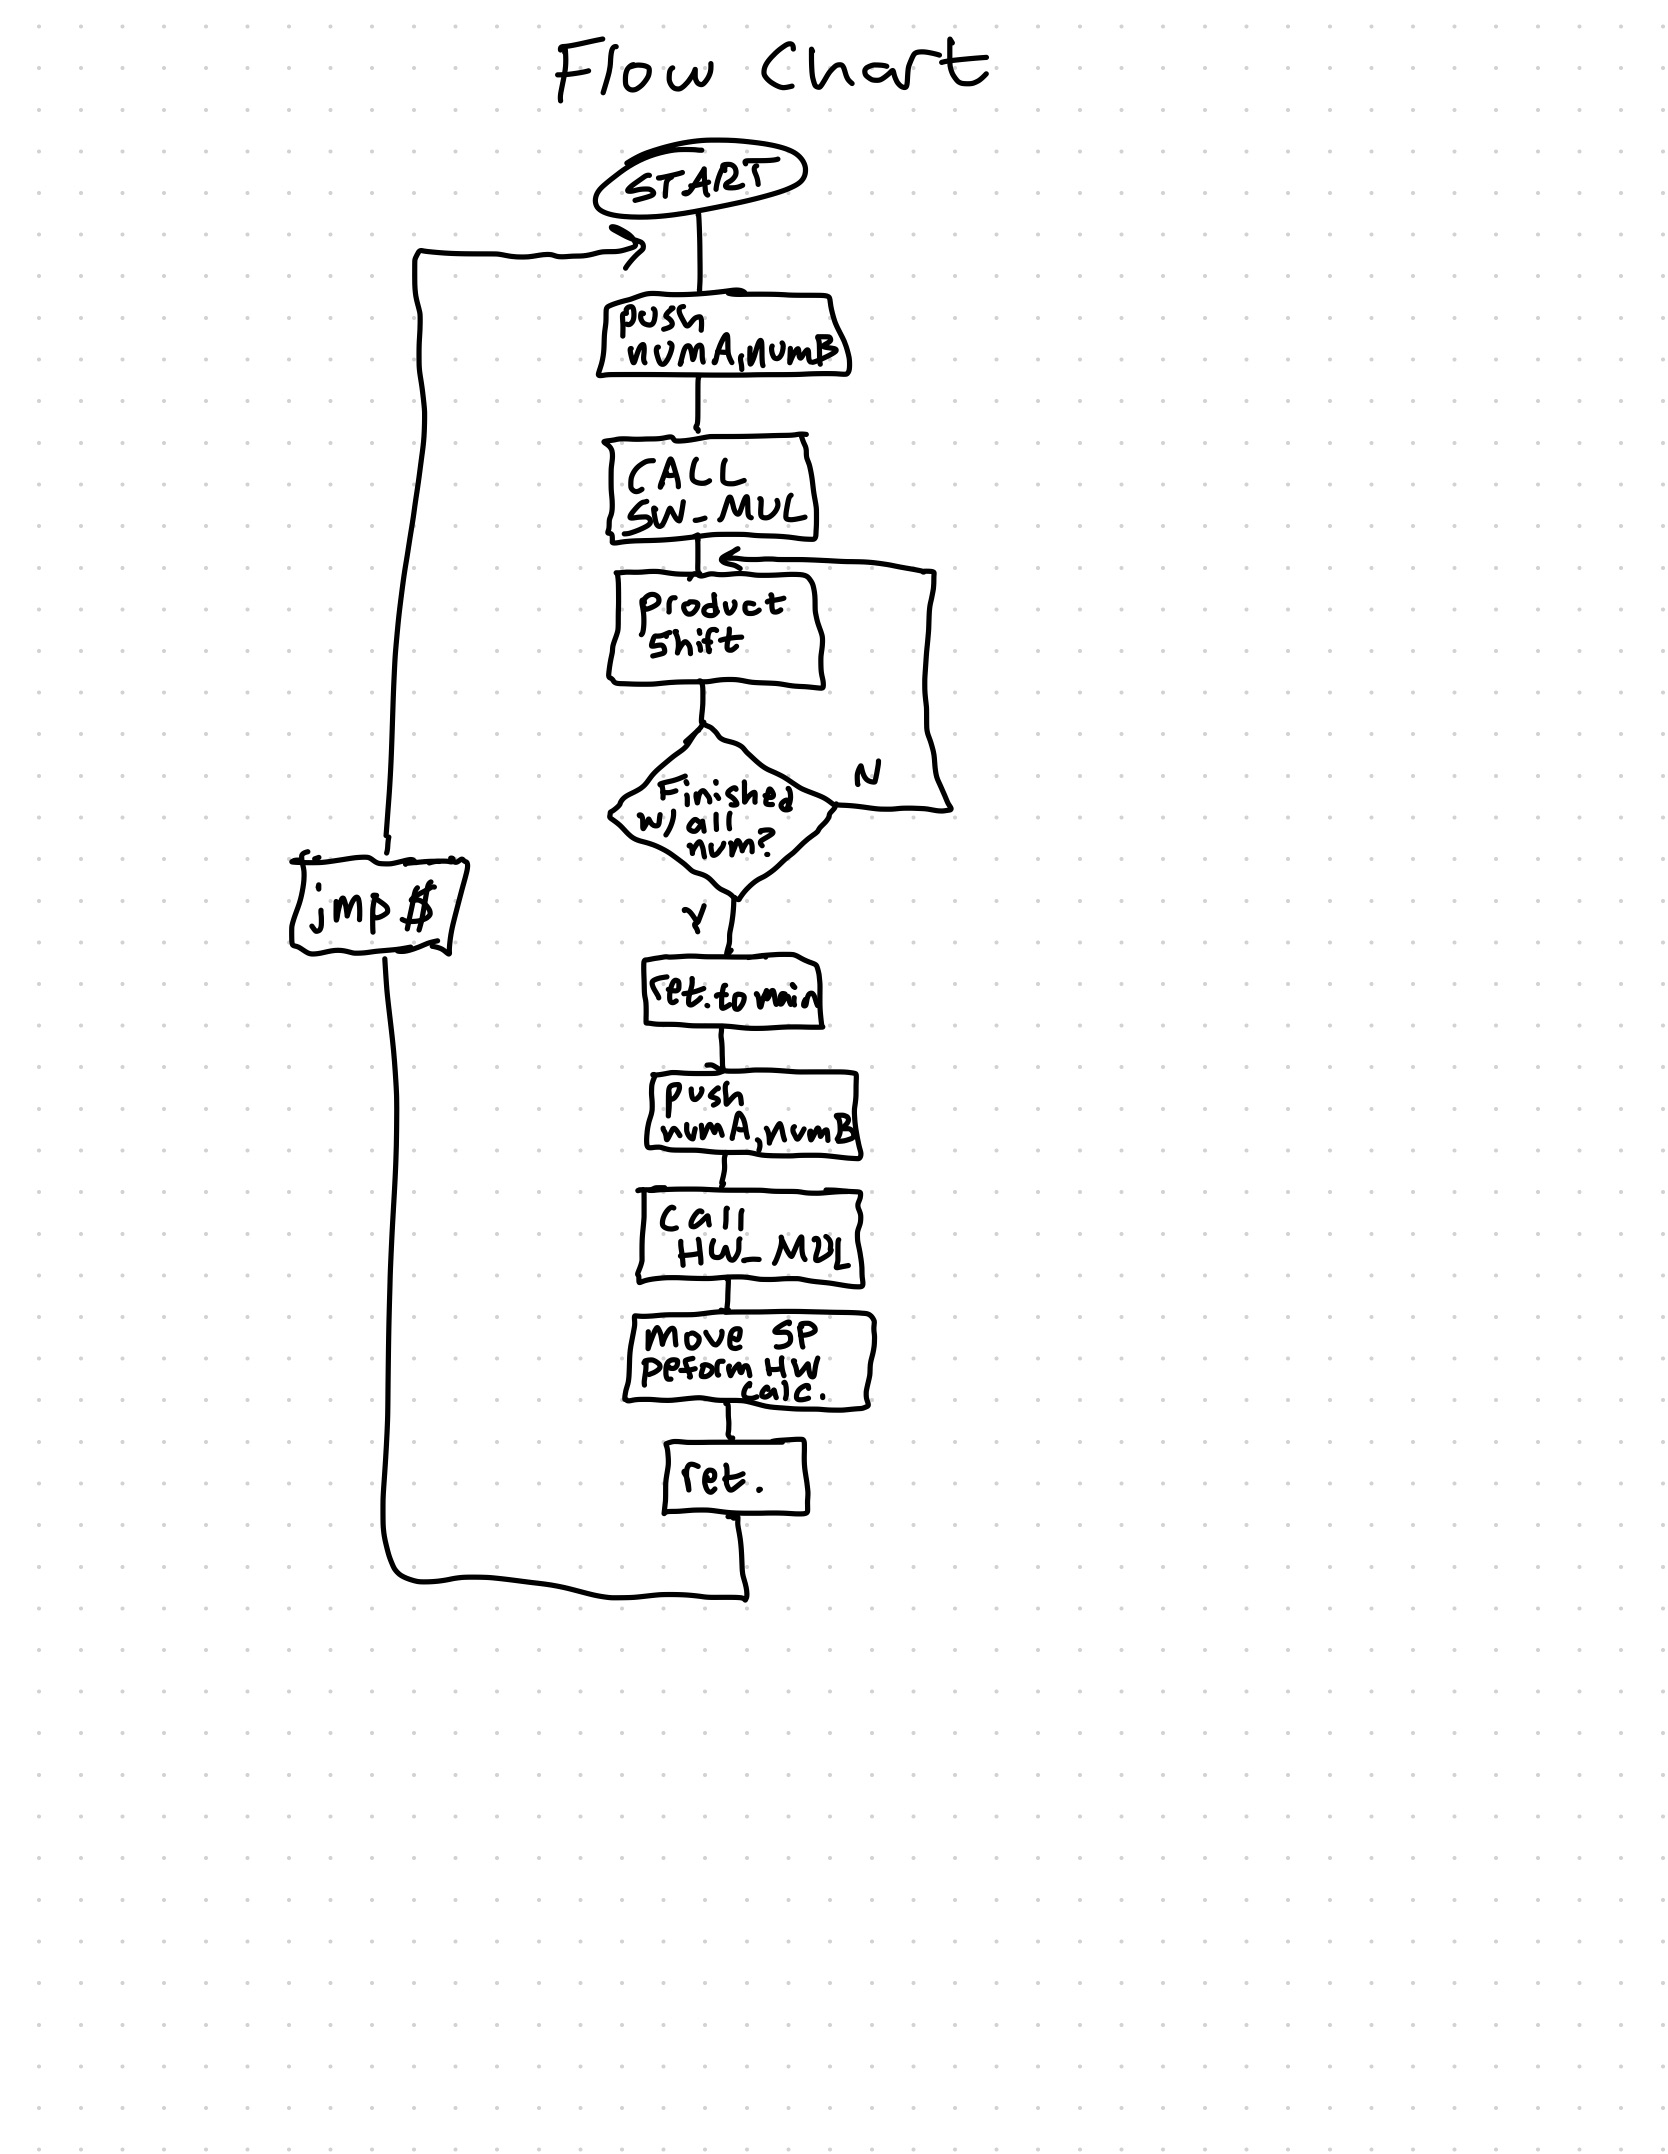 Flow Chart
START
push
numA,numB
CALL
SW_MUL
product
shift
Finished
w/ all
num?
N
Y
jmp $
ret. to main
push
numA,numB
call
HW_MUL
move SP
peform HW
calc.
ret.